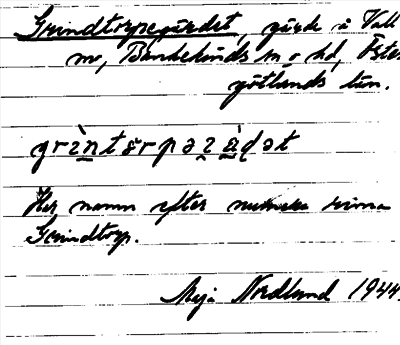 Grindtorpegärdet, gärde å Vall
sn, Bankekinds sn o hd, Öster
götlands län.
grìntorpəɿàḍət
Har namn efter numera rivna
Grindtorp.
Maja Nordlund 1944.